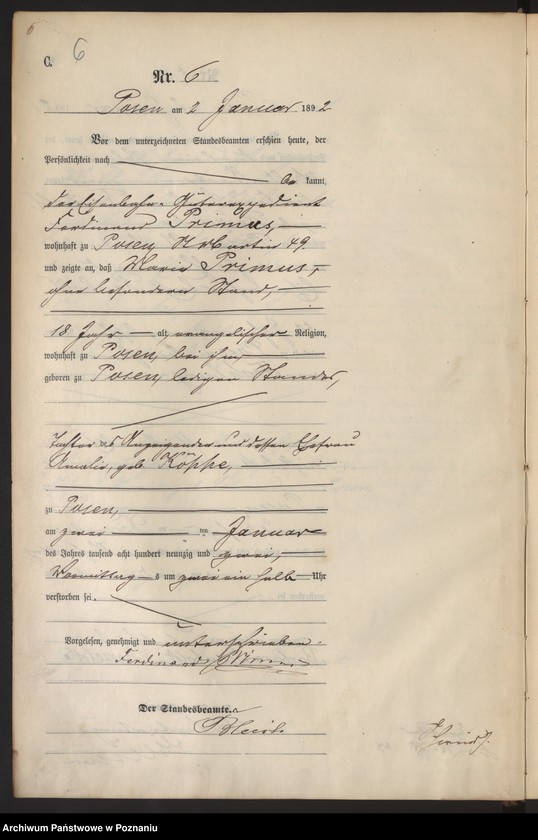 6
C. 6
Nr. 6
Posen am 2 Januar 1892
Vor dem unterzeichneten Standesbeamten erschien heute, der
Persönlichkeit nach
be kannt,
der Eisenbahn-Güterexpedient
Ferdinand Primus,
wohnhaft zu Posen, St Martin 49
und zeigte an, daß Marie Primus,
ohne besonderen Stand,
18 Jahr alt, evangelischer Religion,
wohnhaft zu Posen, bei ihm
geboren zu Posen, ledigen Standes,
Tochter des Anzeigenden und dessen Ehefrau
Amalie, geb. Köppe,
zu Posen,
am zwei ten Januar
des Jahres tausend acht hundert neunzig und zwei,
Vormittags um zwei ein halb Uhr
verstorben sei.
Vorgelesen, genehmigt und unterschrieben.
Ferdinand Primus
Der Standesbeamte.
Archiwum Państwowe w Poznaniu